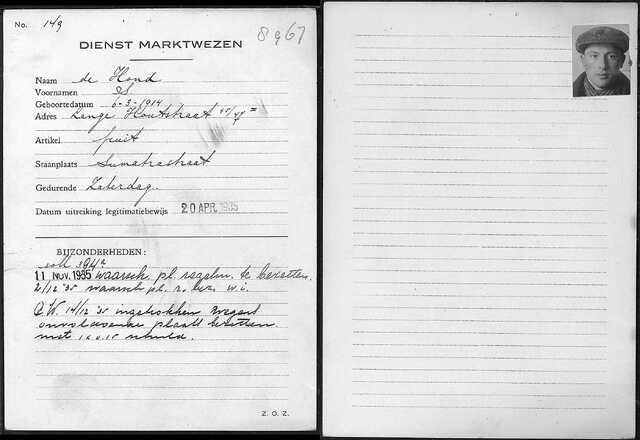 No. 149
8967
DIENST MARKTWEZEN
Naam de Hond
Voornamen S.
Geboortedatum 6-3-1914
Adres Lange Houtstraat 45/47 II
Artikel fruit
Staanplaats Sumatrastraat
Gedurende Zaterdag.
Datum uitreiking legitimatiebewijs 20 APR. 1935
BIJZONDERHEDEN:
soll 3942
11 NOV. 1935 waarsch. pl. regelm. te bezetten.
2/12 '35 waarsch. pl. r. bez. w.i.
C.W. 14/12 '35 ingetrokken wegens
onvoldoende plaats bezetten
met
Z. O. Z.